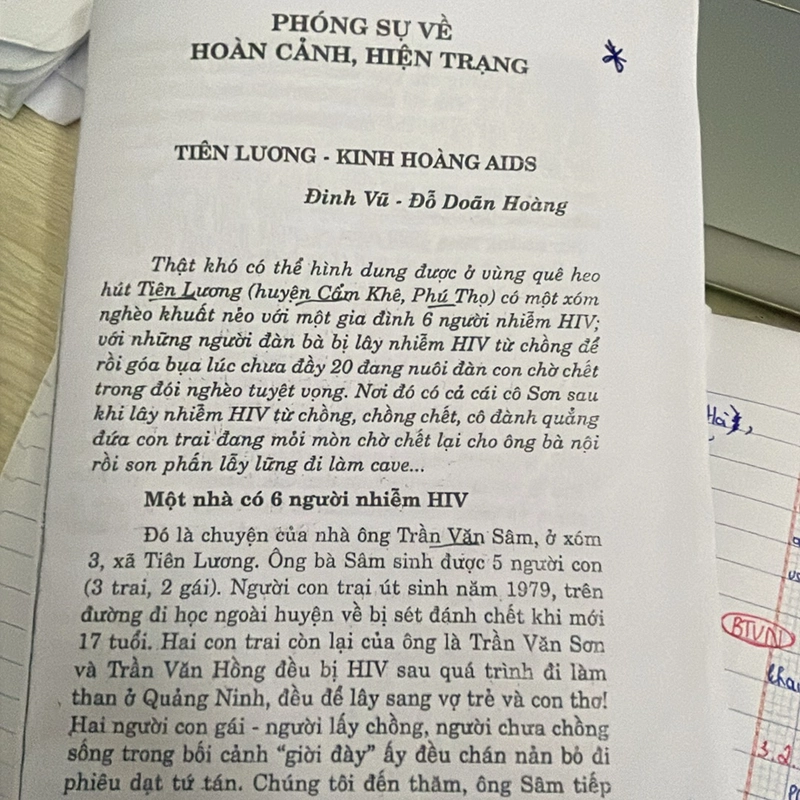 PHÓNG SỰ VỀ
HOÀN CẢNH, HIỆN TRẠNG
TIÊN LƯƠNG - KINH HOÀNG AIDS
Đinh Vũ - Đỗ Doãn Hoàng
Thật khó có thể hình dung được ở vùng quê heo
hút Tiên Lương (huyện Cẩm Khê, Phú Thọ) có một xóm
nghèo khuất nẻo với một gia đình 6 người nhiễm HIV;
với những người đàn bà bị lây nhiễm HIV từ chồng để
rồi góa bụa lúc chưa đầy 20 đang nuôi đàn con chờ chết
trong đói nghèo tuyệt vọng. Nơi đó có cả cái cô Sơn sau
khi lây nhiễm HIV từ chồng, chồng chết, cô đành quẳng
đứa con trai đang mỏi mòn chờ chết lại cho ông bà nội
rồi son phấn lẫy lừng đi làm cave...
Một nhà có 6 người nhiễm HIV
Đó là chuyện của nhà ông Trần Văn Sâm, ở xóm
3, xã Tiên Lương. Ông bà Sâm sinh được 5 người con
(3 trai, 2 gái). Người con trai út sinh năm 1979, trên
đường đi học ngoài huyện về bị sét đánh chết khi mới
17 tuổi. Hai con trai còn lại của ông là Trần Văn Sơn
và Trần Văn Hồng đều bị HIV sau quá trình đi làm
than ở Quảng Ninh, đều để lây sang vợ trẻ và con thơ!
Hai người con gái - người lấy chồng, người chưa chồng
sống trong bối cảnh "giời đày" ấy đều chán nản bỏ đi
phiêu dạt tứ tán. Chúng tôi đến thăm, ông Sâm tiếp
BTVN
3.2